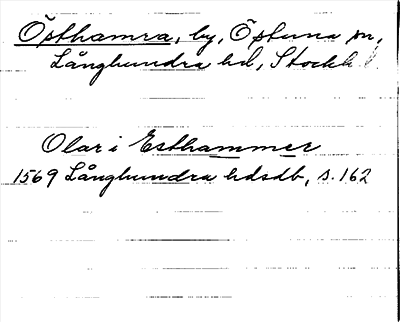 Östhamra, by, Östuna sn,
Långhundra hd, Stockh. l.
Olar i Esthammer
1569 Långhundra hdsdb, s. 162